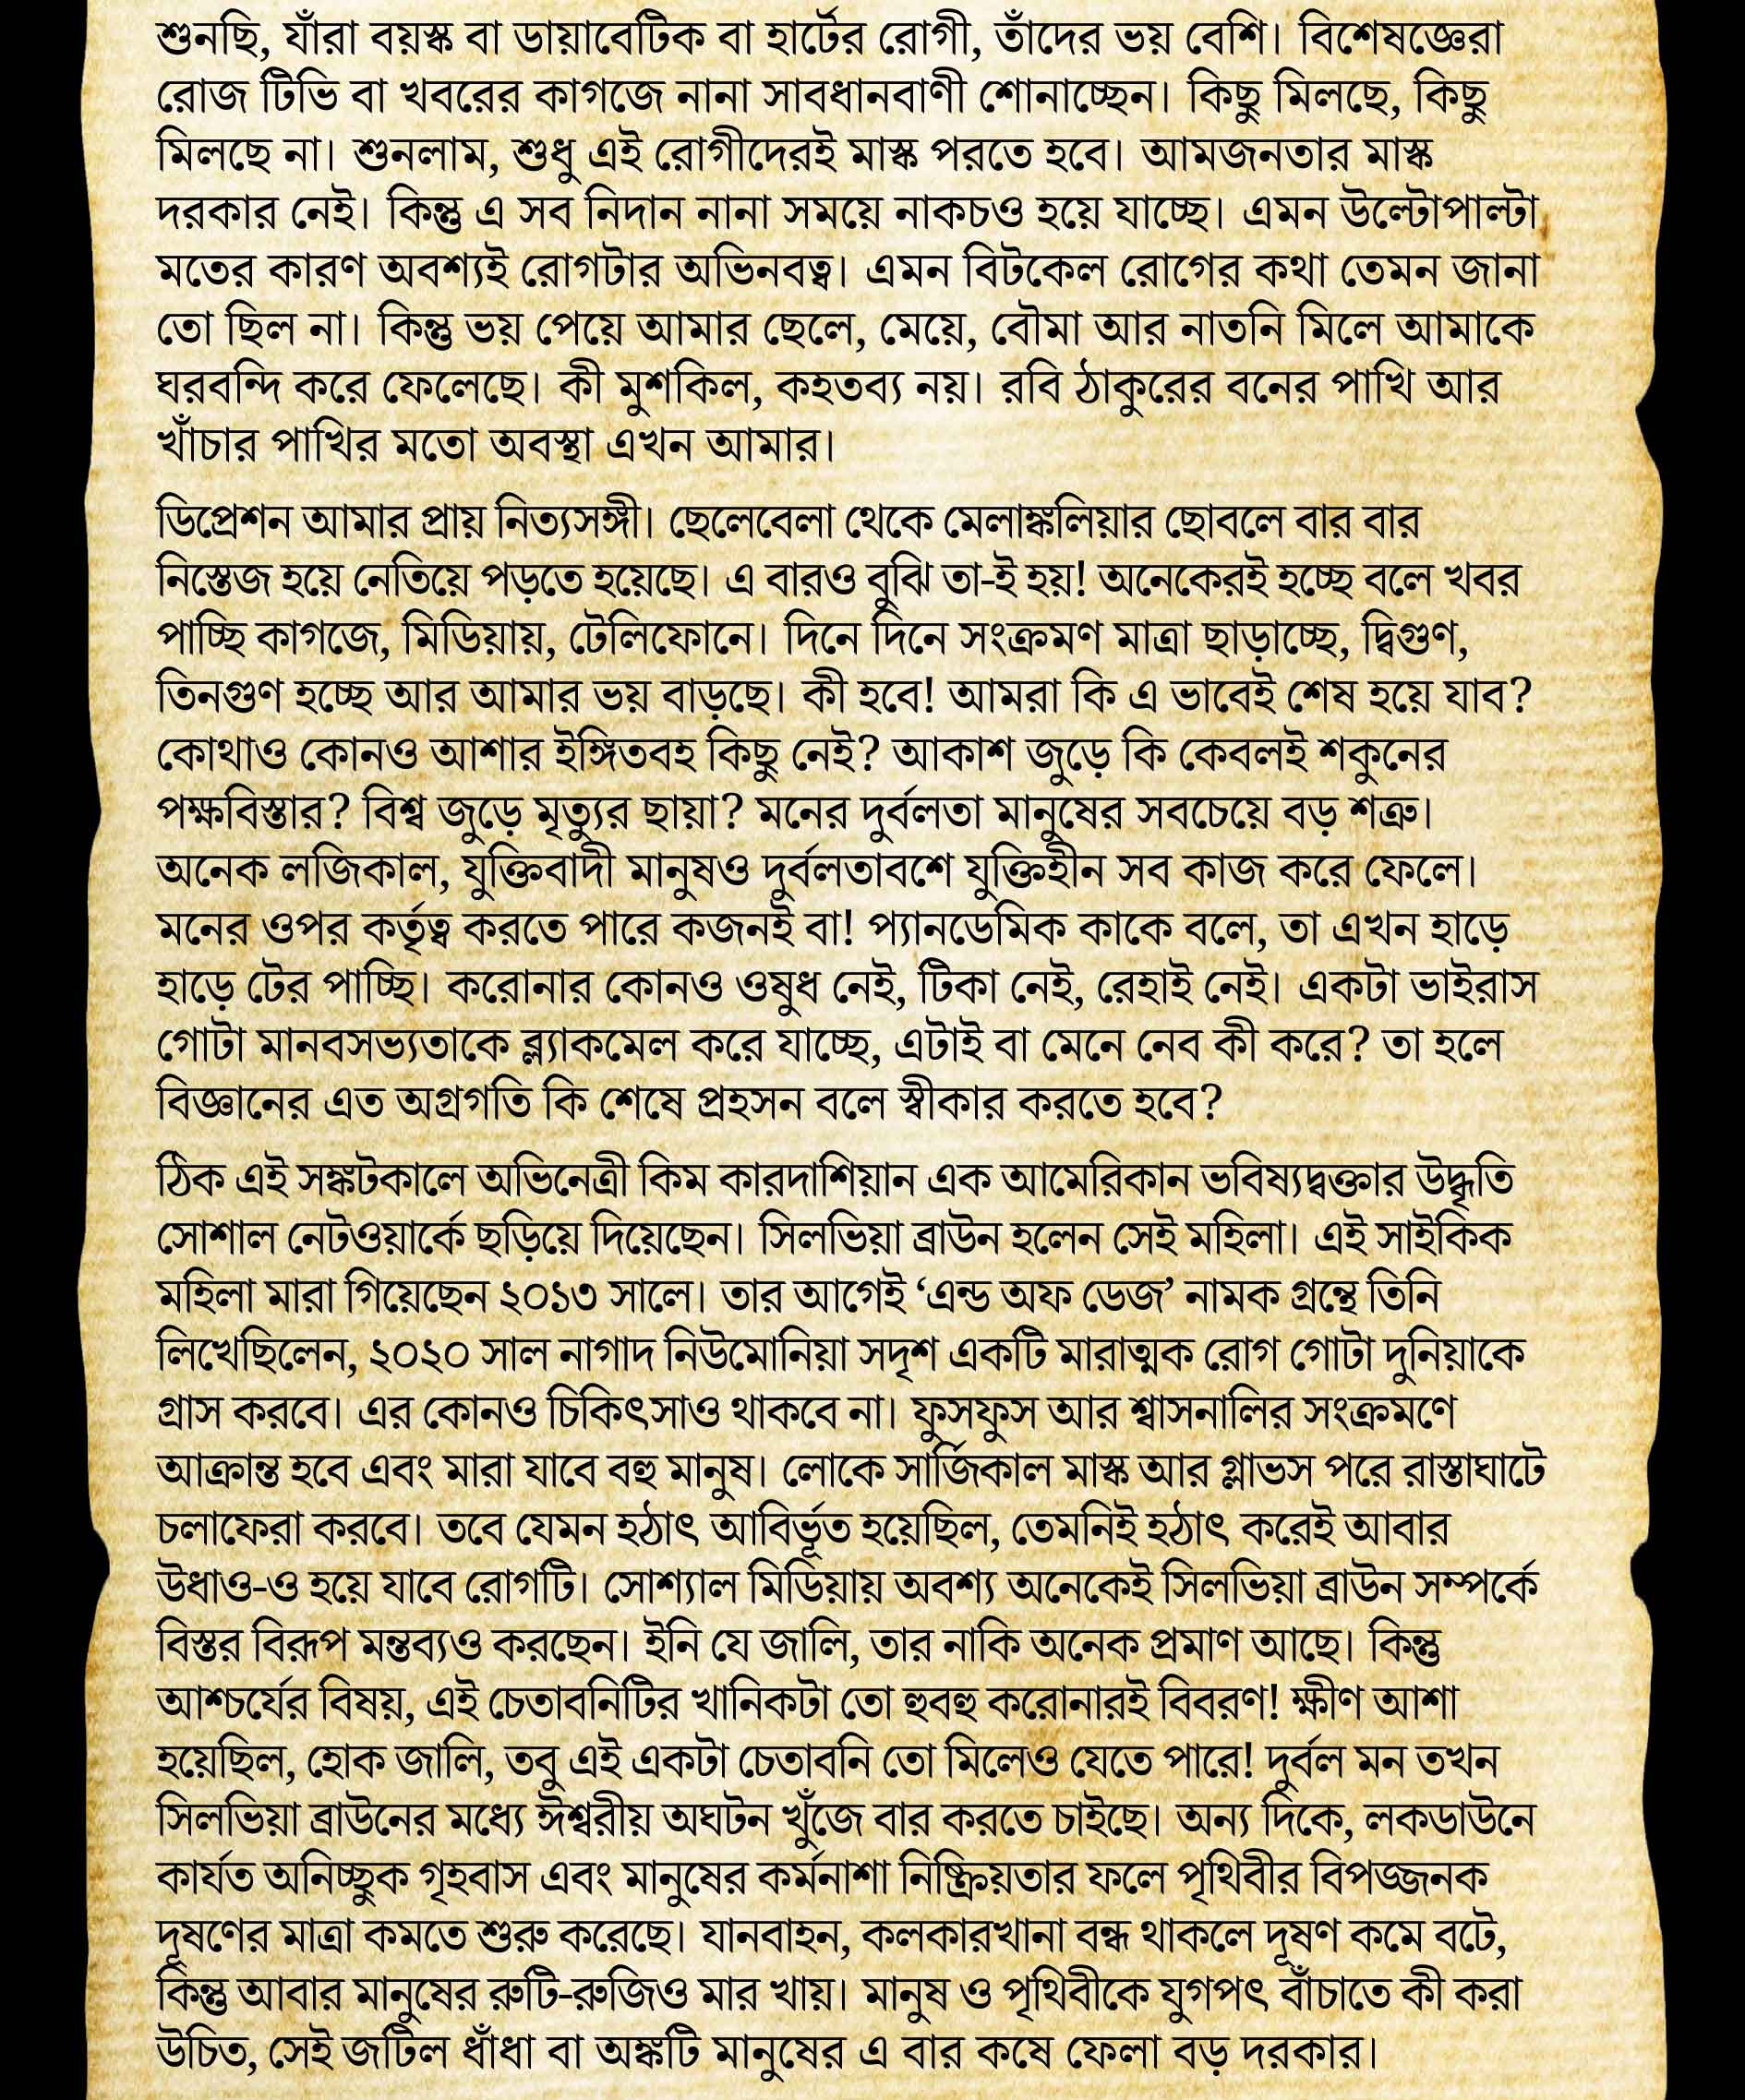 শুনছি, যাঁরা বয়স্ক বা ডায়াবেটিক বা হার্টের রোগী, তাঁদের ভয় বেশি। বিশেষজ্ঞেরা
রোজ টিভি বা খবরের কাগজে নানা সাবধানবাণী শোনাচ্ছেন। কিছু মিলছে, কিছু
মিলছে না। শুনলাম, শুধু এই রোগীদেরই মাস্ক পরতে হবে। আমজনতার মাস্ক
দরকার নেই। কিন্তু এ সব নিদান নানা সময়ে নাকচও হয়ে যাচ্ছে। এমন উল্টোপাল্টা
মতের কারণ অবশ্যই রোগটার অভিনবত্ব। এমন বিটকেল রোগের কথা তেমন জানা
তো ছিল না। কিন্তু ভয় পেয়ে আমার ছেলে, মেয়ে, বৌমা আর নাতনি মিলে আমাকে
ঘরবন্দি করে ফেলেছে। কী মুশকিল, কহতব্য নয়। রবি ঠাকুরের বনের পাখি আর
খাঁচার পাখির মতো অবস্থা এখন আমার।
ডিপ্রেশন আমার প্রায় নিত্যসঙ্গী। ছেলেবেলা থেকে মেলাঙ্কলিয়ার ছোবলে বার বার
নিস্তেজ হয়ে নেতিয়ে পড়তে হয়েছে। এ বারও বুঝি তা-ই হয়! অনেকেরই হচ্ছে বলে খবর
পাচ্ছি কাগজে, মিডিয়ায়, টেলিফোনে। দিনে দিনে সংক্রমণ মাত্রা ছাড়াচ্ছে, দ্বিগুণ,
তিনগুণ হচ্ছে আর আমার ভয় বাড়ছে। কী হবে! আমরা কি এ ভাবেই শেষ হয়ে যাব?
কোথাও কোনও আশার ইঙ্গিতবহ কিছু নেই? আকাশ জুড়ে কি কেবলই শকুনের
পক্ষবিস্তার? বিশ্ব জুড়ে মৃত্যুর ছায়া? মনের দুর্বলতা মানুষের সবচেয়ে বড় শত্রু।
অনেক লজিকাল, যুক্তিবাদী মানুষও দুর্বলতাবশে যুক্তিহীন সব কাজ করে ফেলে।
মনের ওপর কর্তৃত্ব করতে পারে কজনই বা! প্যানডেমিক কাকে বলে, তা এখন হাড়ে
হাড়ে টের পাচ্ছি। করোনার কোনও ওষুধ নেই, টিকা নেই, রেহাই নেই। একটা ভাইরাস
গোটা মানবসভ্যতাকে ব্ল্যাকমেল করে যাচ্ছে, এটাই বা মেনে নেব কী করে? তা হলে
বিজ্ঞানের এত অগ্রগতি কি শেষে প্রহসন বলে স্বীকার করতে হবে?
ঠিক এই সঙ্কটকালে অভিনেত্রী কিম কারদাশিয়ান এক আমেরিকান ভবিষ্যদ্বক্তার উদ্ধৃতি
সোশাল নেটওয়ার্কে ছড়িয়ে দিয়েছেন। সিলভিয়া ব্রাউন হলেন সেই মহিলা। এই সাইকিক
মহিলা মারা গিয়েছেন ২০১৩ সালে। তার আগেই ‘এন্ড অফ ডেজ’ নামক গ্রন্থে তিনি
লিখেছিলেন, ২০২০ সাল নাগাদ নিউমোনিয়া সদৃশ একটি মারাত্মক রোগ গোটা দুনিয়াকে
গ্রাস করবে। এর কোনও চিকিৎসাও থাকবে না। ফুসফুস আর শ্বাসনালির সংক্রমণে
আক্রান্ত হবে এবং মারা যাবে বহু মানুষ। লোকে সার্জিকাল মাস্ক আর গ্লাভস পরে রাস্তাঘাটে
চলাফেরা করবে। তবে যেমন হঠাৎ আবির্ভূত হয়েছিল, তেমনিই হঠাৎ করেই আবার
উধাও-ও হয়ে যাবে রোগটি। সোশ্যাল মিডিয়ায় অবশ্য অনেকেই সিলভিয়া ব্রাউন সম্পর্কে
বিস্তর বিরূপ মন্তব্যও করছেন। ইনি যে জালি, তার নাকি অনেক প্রমাণ আছে। কিন্তু
আশ্চর্যের বিষয়, এই চেতাবনিটির খানিকটা তো হুবহু করোনারই বিবরণ! ক্ষীণ আশা
হয়েছিল, হোক জালি, তবু এই একটা চেতাবনি তো মিলেও যেতে পারে! দুর্বল মন তখন
সিলভিয়া ব্রাউনের মধ্যে ঈশ্বরীয় অঘটন খুঁজে বার করতে চাইছে। অন্য দিকে, লকডাউনে
কার্যত অনিচ্ছুক গৃহবাস এবং মানুষের কর্মনাশা নিষ্ক্রিয়তার ফলে পৃথিবীর বিপজ্জনক
দূষণের মাত্রা কমতে শুরু করেছে। যানবাহন, কলকারখানা বন্ধ থাকলে দূষণ কমে বটে,
কিন্তু আবার মানুষের রুটি-রুজিও মার খায়। মানুষ ও পৃথিবীকে যুগপৎ বাঁচাতে কী করা
উচিত, সেই জটিল ধাঁধা বা অঙ্কটি মানুষের এ বার কষে ফেলা বড় দরকার।